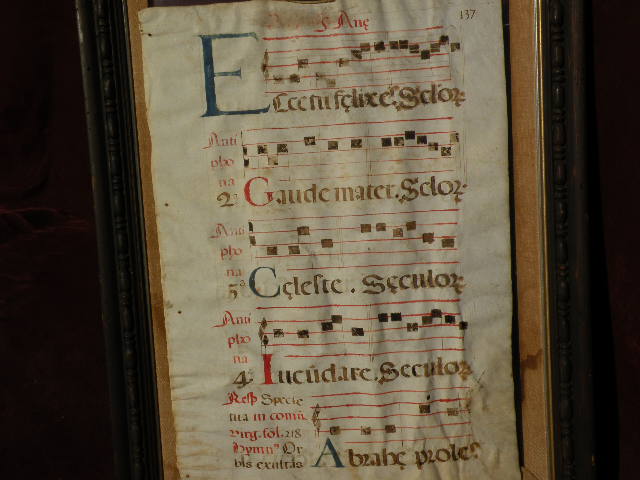 137
Anę
Scloꝝ
Anti
pho
na
2ª Gaude mater. Scloꝝ
Anti
pho
na
3ª Cęleste. Sęculoꝝ
Anti
pho
na
4ª Iucūdare. Seculoꝝ
Resp Specie
tua in comū.
virg. fol. 218
Hymnꝰ Or
bis exultās
Abrahę proles